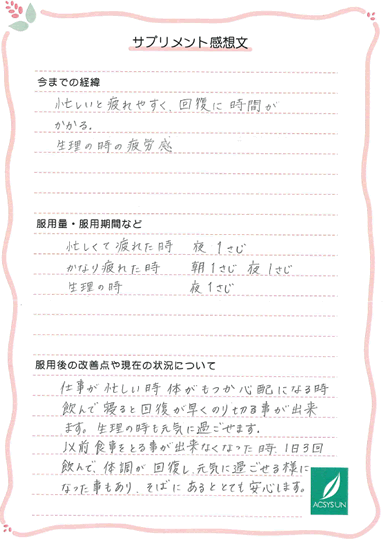 サプリメント感想文
今までの経緯
忙しいと疲れやすく、回復に時間が
かかる.
生理の時の疲労感
服用量・服用期間など
忙しくて疲れた時 夜 1さじ
かなり疲れた時 朝1さじ 夜1さじ
生理の時 夜1さじ
服用後の改善点や現在の状況について
仕事が忙しい時 体がもつか心配になる時
飲んで寝ると回復が早くのり切る事が出来
ます。生理の時も元気に過ごせます.
以前食事をとる事が出来なくなった時、1日3回
飲んで、体調が回復し、元気に過ごせる様に
なった事もあり、そばにあるととても安心します。
ACSYSUN